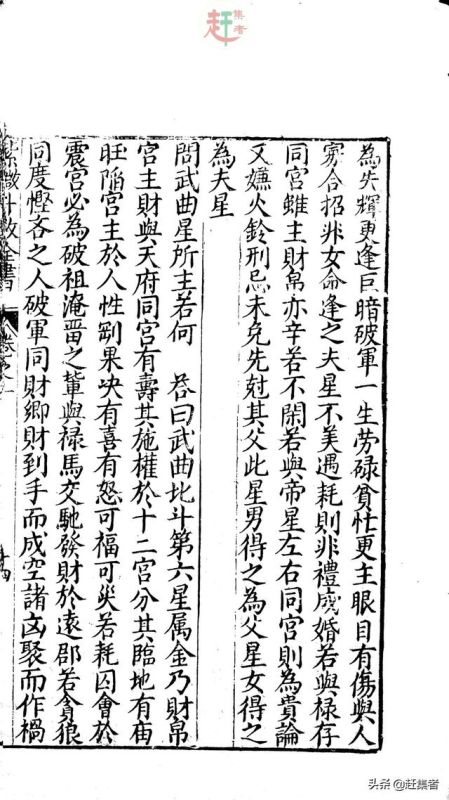 赶集者
為失輝更逢巨暗破軍一生勞碌貧忙更主眼目有傷與人
寡合招非女命逢之夫星不美遇耗則非禮成婚若與祿存
同宮雖主財帛亦辛苦不閑若與帝星左右同宮則為貴論
又嫌火鈴刑忌未免先尅其父此星男得之為父星女得之
為夫星
問武曲星所主若何 答曰武曲北斗第六星属金乃財帛
宮主財與天府同宮有壽其施權於十二宮分其臨地有庙
旺陷宮主於人性剛果决有喜有怒可福可灾若耗囚會於
震宮必為破祖淹畱之輩與禄馬交馳發財於遠郡若貪狼
同度慳吝之人破軍同財鄉財到手而成空諸凶聚而作禍
紫微斗数全書 卷之一
头条 @赶集者